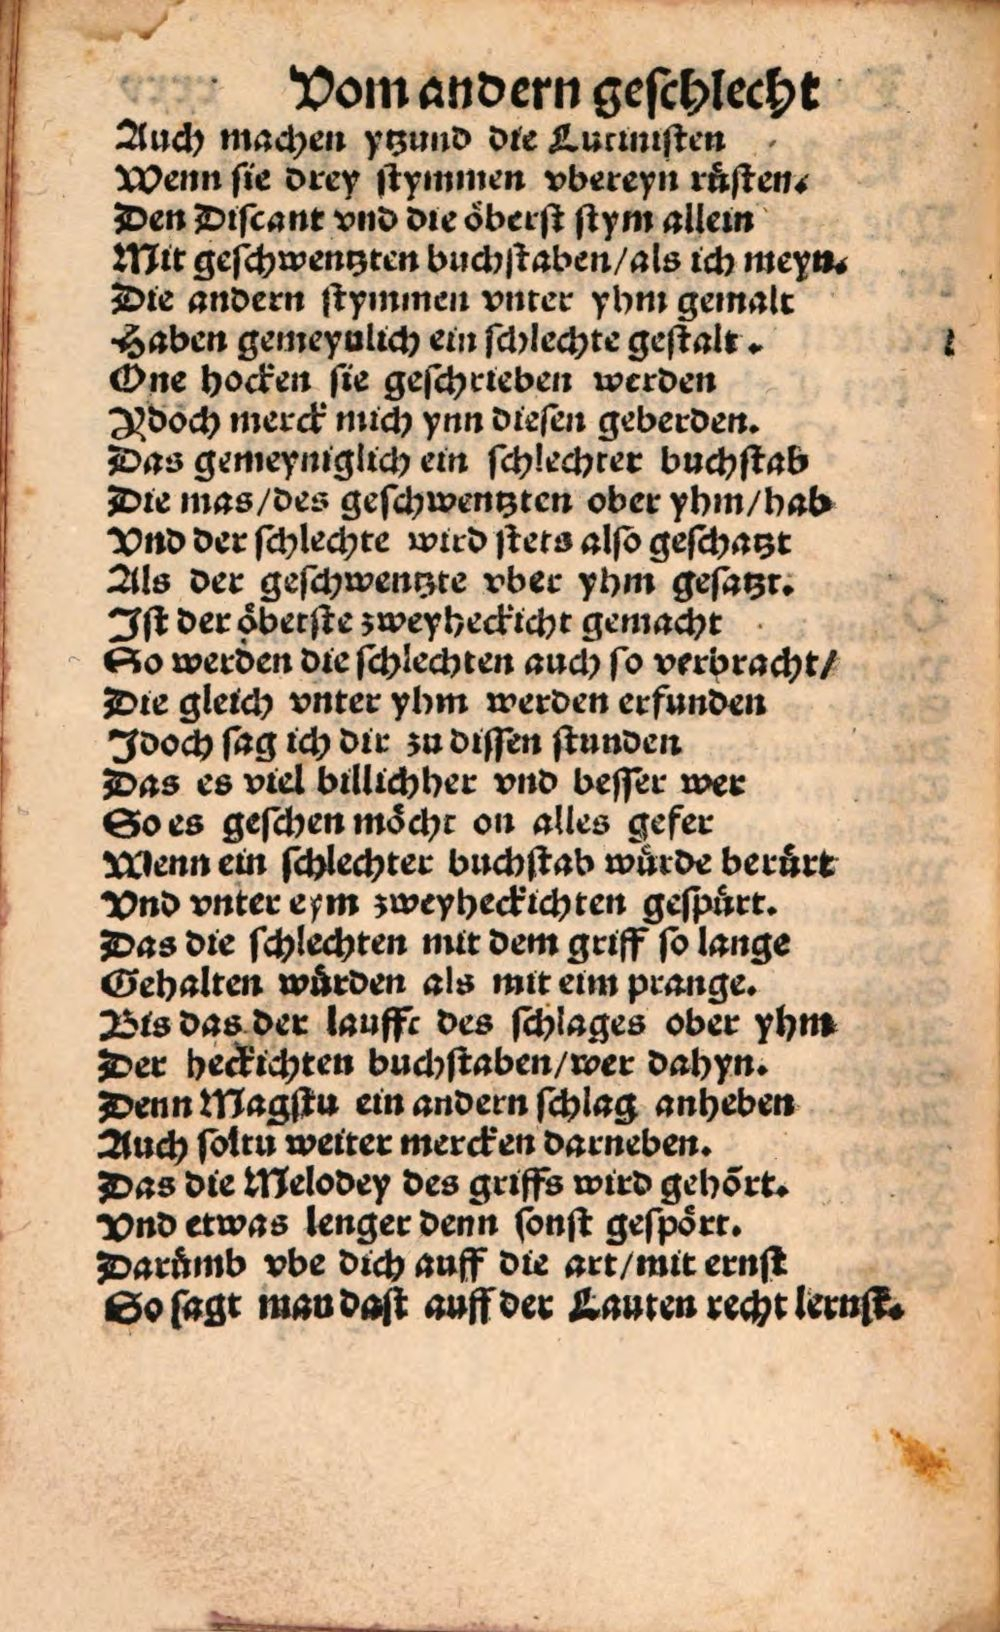 Vom andern geschlecht
Auch machen ytzund die Lutinisten
Wenn sie drey stymmen vbereyn rüsten.
Den Discant vnd die öberst stym allein
Mit geschwentzten buchstaben/als ich meyn.
Die andern stymmen vnter yhm gemalt
Haben gemeynlich ein schlechte gestalt.
One hocken sie geschrieben werden
Ydoch merck mich ynn diesen geberden.
Das gemeyniglich ein schlechter buchstab
Die mas/des geschwentzten ober yhm/hab
Vnd der schlechte wird stets also geschatzt
Als der geschwentzte vber yhm gesatzt.
Ist der öberste zweyheckicht gemacht
So werden die schlechten auch so verbracht/
Die gleich vnter yhm werden erfunden
Idoch sag ich dir zu dissen stunden
Das es viel billichher vnd besser wer
So es geschen möcht on alles gefer
Wenn ein schlechter buchstab würde berürt
Vnd vnter eym zweyheckichten gespürt.
Das die schlechten mit dem griff so lange
Gehalten würden als mit eim prange.
Bis das der lauffe des schlages ober yhm
Der heckichten buchstaben/wer dahyn.
Denn Magstu ein andern schlag anheben
Auch soltu weiter mercken darneben.
Das die Melodey des griffs wird gehört.
Vnd etwas lenger denn sonst gespört.
Darümb vbe dich auff die art/mit ernst
So sagt man dast auff der Lauten recht lernst.